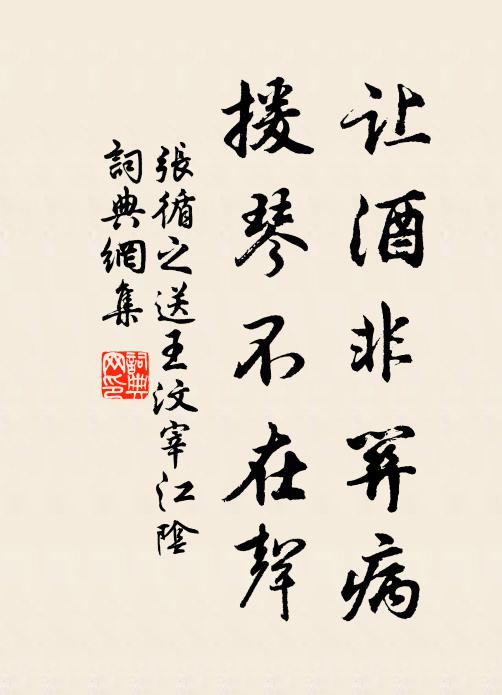 让酒非關病
援琴不在聲
張循之送王汶宰江陰
詞典網集
詞典
网印